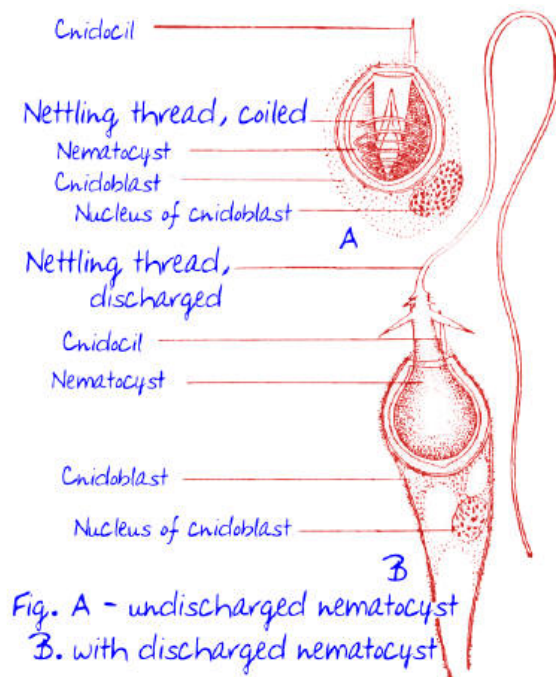 Cnidocil
Nettling thread, coiled
Nematocyst
Cnidoblast
Nucleus of cnidoblast
A
Nettling thread,
discharged
Cnidocil
Nematocyst
Cnidoblast
Nucleus of cnidoblast
B
Fig. A - undischarged nematocyst
B. with discharged nematocyst